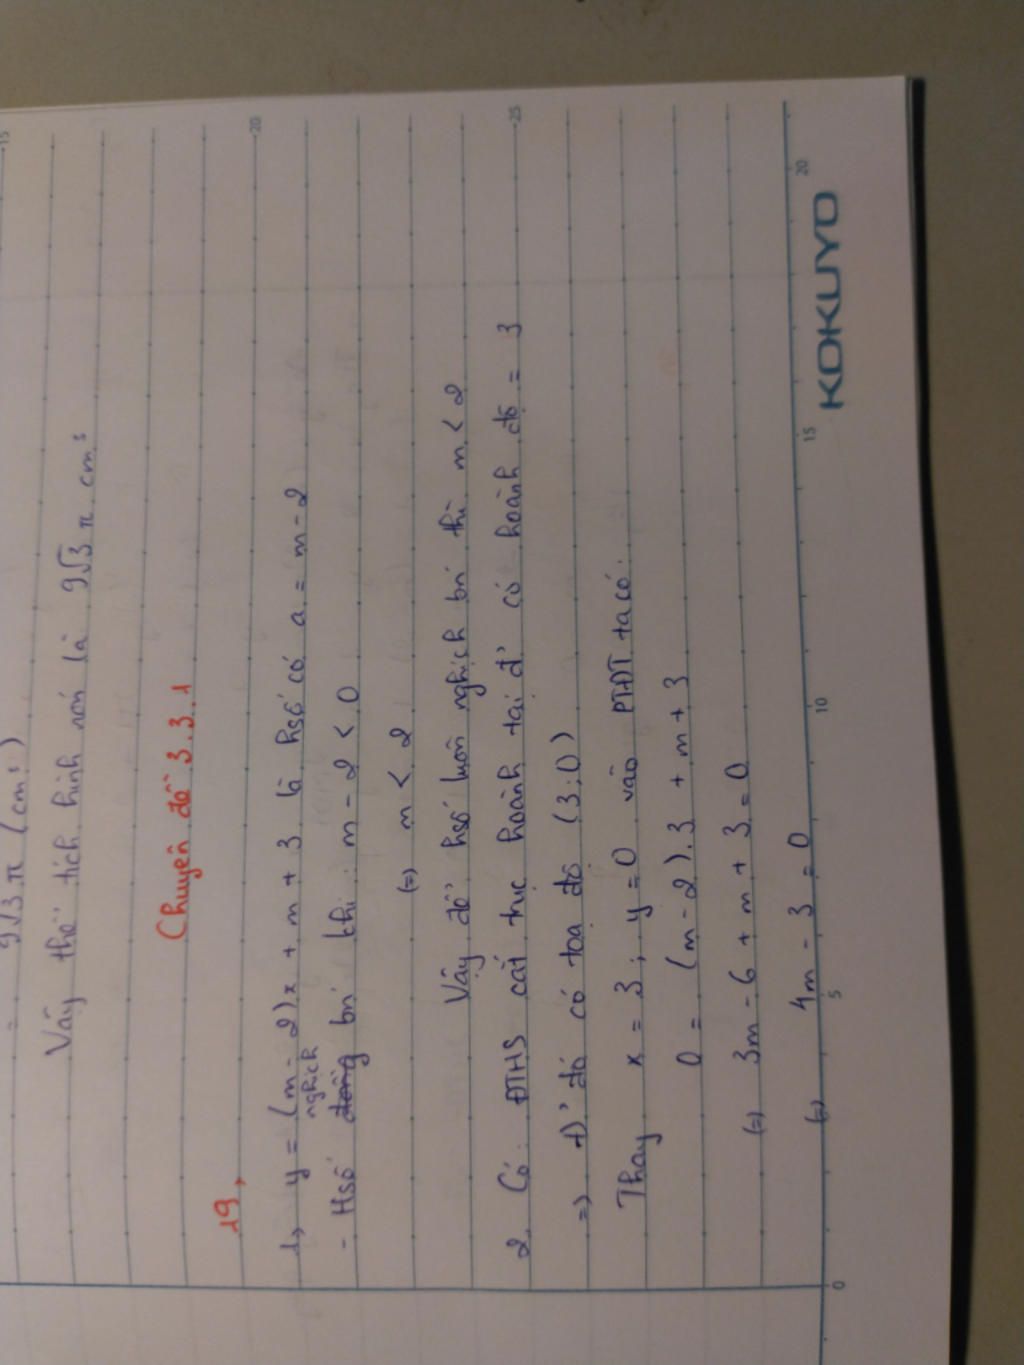 = 9√3 π (cm³)
Vậy thể tích hình nón là 9√3 π cm³
Chuyên đề 3.3.1
19,
1, y = (m - 2)x + m + 3 là hsố có a = m - 2
nghịch
- Hsố đồng bń khi : m - 2 < 0
(=) m < 2
Vậy để hsố luôn nghịch bń thì m < 2
2, Có : ĐTHS cắt trục hoành tại đ' có hoành độ = 3
=) Đ' đó có toạ độ (3;0)
Thay x = 3 ; y = 0 vào PTĐT ta có :
0 = (m - 2).3 + m + 3
(=) 3m - 6 + m + 3 = 0
(=) 4m - 3 = 0
15
20
25
0
5
10
15
20
KOKUYO